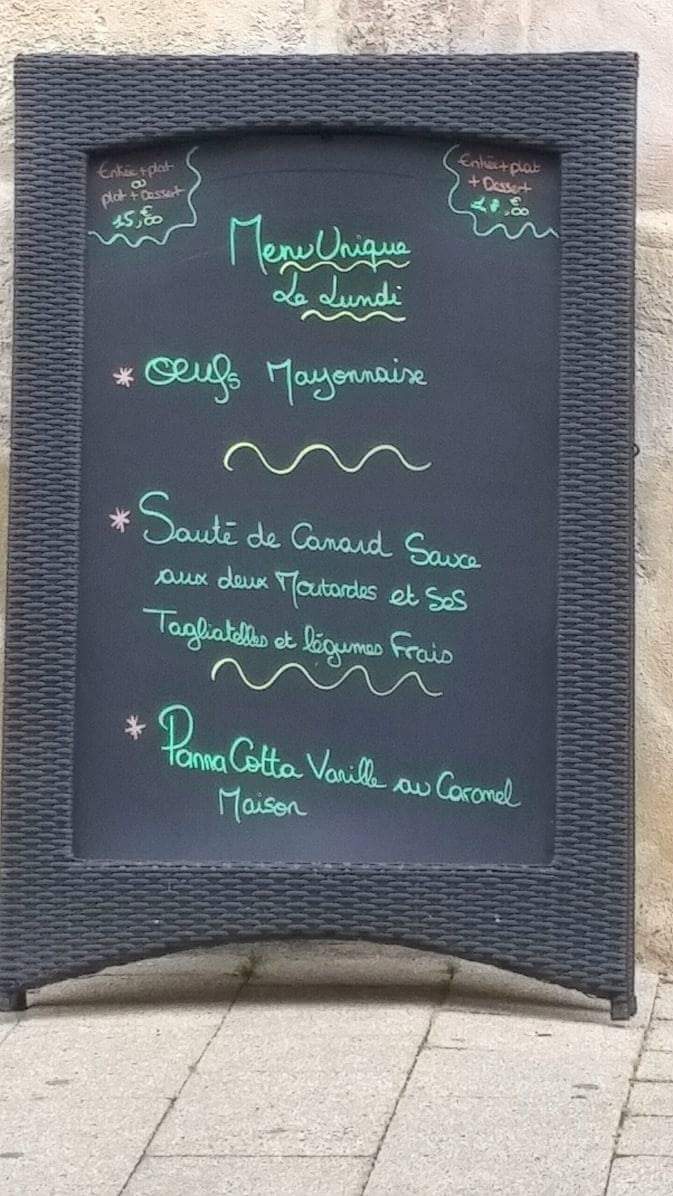 Entrée + plat
ou
plat + Dessert
15,€00
Entrée + plat
+ Dessert
18,€00
Menu Unique
Le Lundi
* Oeufs Mayonnaise
* Sauté de Canard Sauce
aux deux Moutardes et Ses
Tagliatelles et légumes Frais
* Panna Cotta Vanille au Caramel
Maison